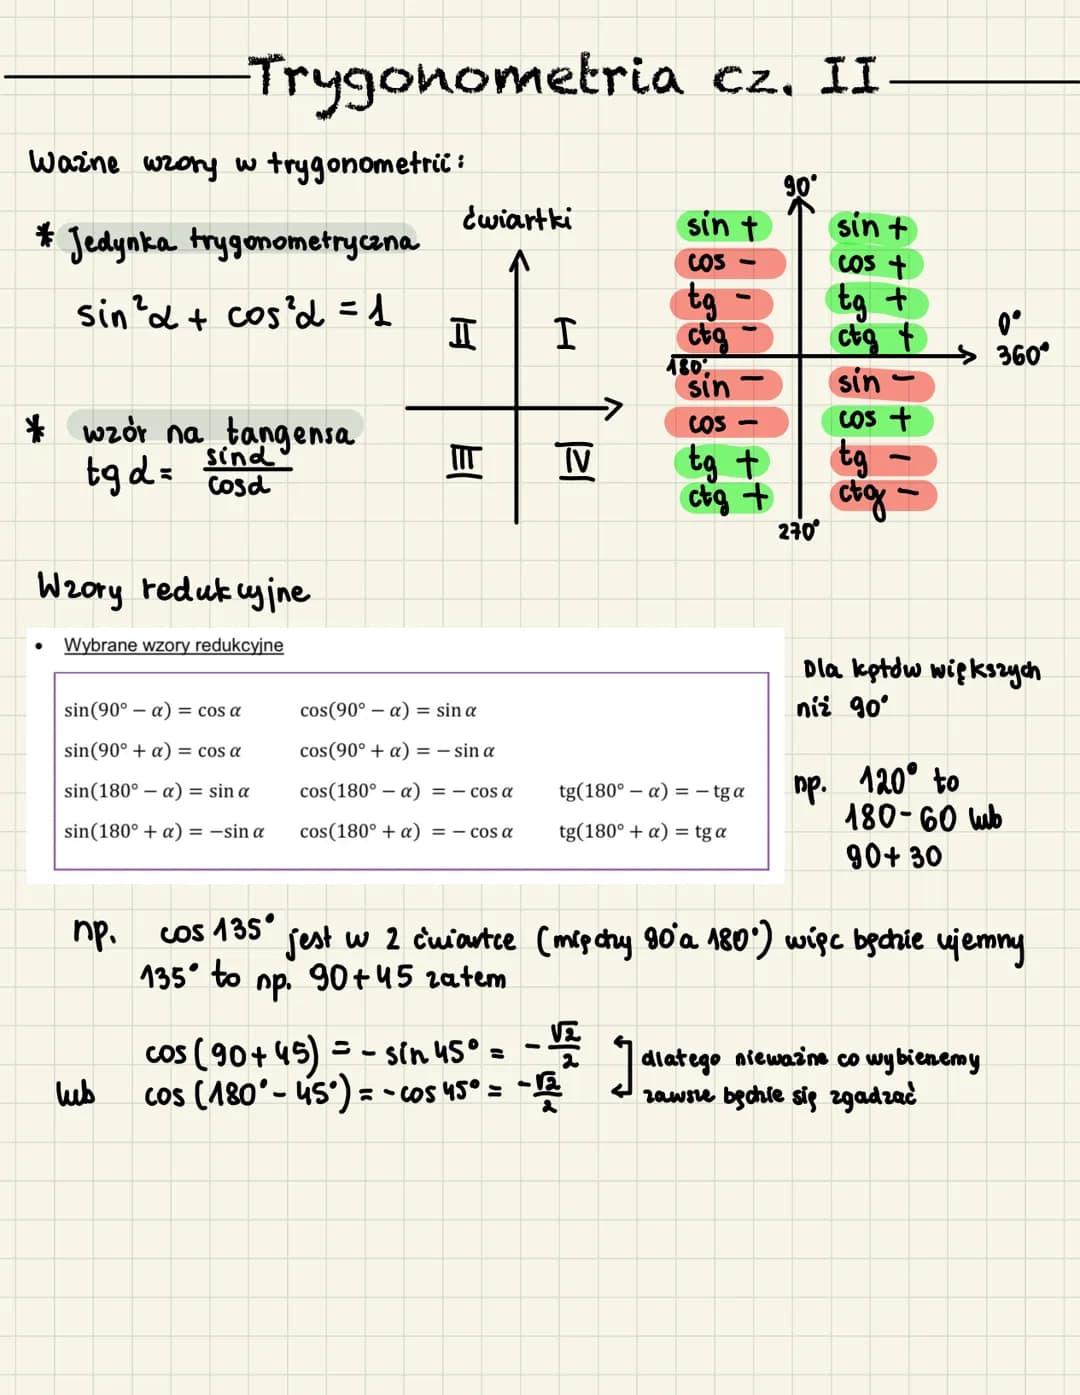 Trygonometria cz. II
Ważne wzory w trygonometrii:
* Jedynka trygonometryczna
sin²α + cos²α = 1
* wzór na tangensa
tg α = sinα / cosα
ćwiartki
II I
III IV
90°
sin + sin +
cos - cos +
tg - tg +
ctg - ctg +
0°
360°
180°
sin - sin -
cos - cos +
tg + tg -
ctg + ctg -
270°
Wzory redukcyjne
• Wybrane wzory redukcyjne
sin(90° − α) = cos α cos(90° − α) = sin α
sin(90° + α) = cos α cos(90° + α) = − sin α
sin(180° − α) = sin α cos(180° − α) = − cos α tg(180° − α) = − tg α
sin(180° + α) = −sin α cos(180° + α) = − cos α tg(180° + α) = tg α
Dla kątów większych
niż 90°
np. 120° to
180-60 lub
90+30
np. cos 135° jest w 2 ćwiartce (między 90° a 180°) więc będzie ujemny
135° to np. 90+45 zatem
cos (90+45) = - sin 45° = - √2/2
lub cos (180°- 45°) = - cos 45° = - √2/2
dlatego nieważne co wybierzemy
zawsze będzie się zgadzać